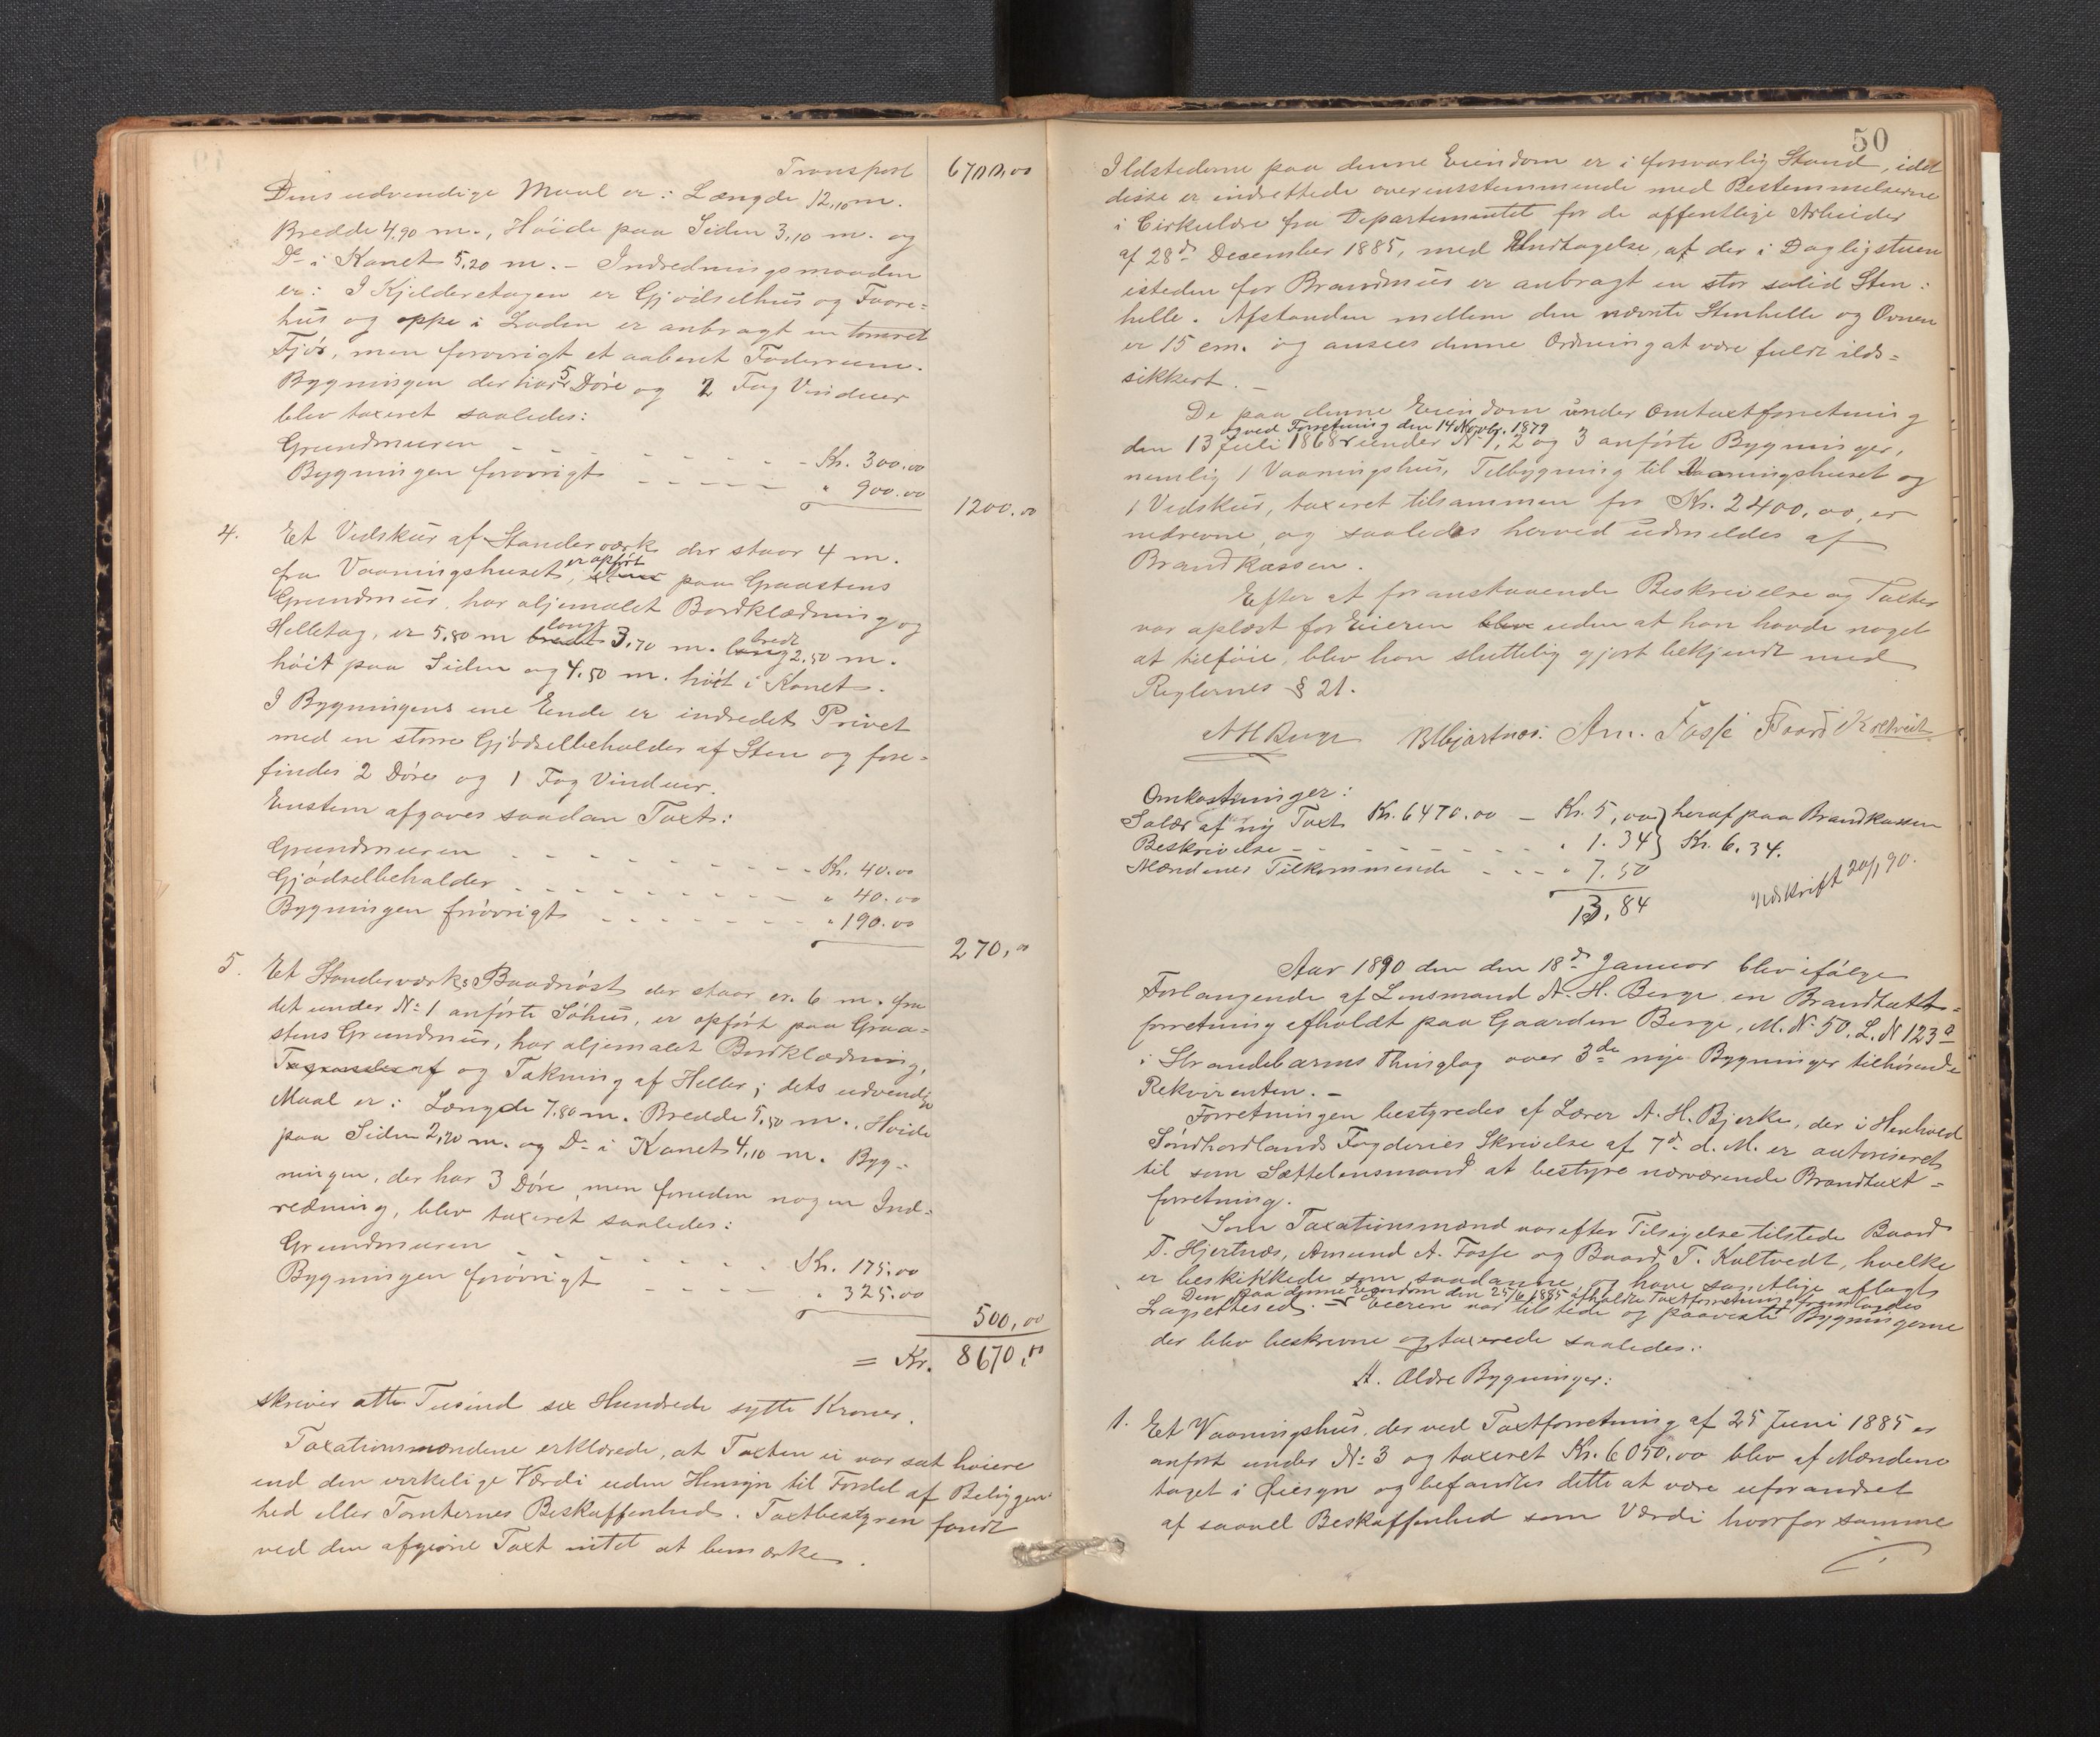 Transport 6700,00
Dens udvendige Maal er: Længde 12,10 m.
Bredde 4,90 m., Höide paa Siden 3,10 m. og
Do i Kanet 5,20 m. – Indredningsmaaden
er: I Kjelderetagen er Gjödselhus og Faare=
hus og oppe i Laden er anbragt en tømret
Fjös, men forövrigt et aabent Foderrum.
Bygningen der har 5 Döre og 2 Fag Vinduer
blev taxeret saaledes:
Grundmuren - - - - - - Kr. 300.00
Bygningen forövrigt - - - - - " 900.00
1200.00
4. Et Vedskur af Standerværk der staar 4 m.
fra Vaaningshuset, er opfört paa Graastens
Grundmur, har oljemalet Bordklædning og
Helletag, er 5,80 m langt 3,70 m. bredt 2,50 m.
höit paa Siden og 4,50 m. höit i Kanet.
I Bygningens ene Ende er indredet Privet
med en större Gjödselbeholder af Sten og fore=
findes 2 Döre og 1 Fag Vinduer.
Eenstem afgaves saadan Taxt:
Grundmuren - - - - - - Kr. 40.00
Gjödselbeholder - - - - - - " 40.00
Bygningen forövrigt - - - - - - " 190.00
270,00
5. Et Standerværks Baadnöst der staar er. 6 m. fra
det under No 1 anförte Söhus, er opfört paa Graa=
stens Grundmur, har oljemalet Bordklædning,
og Takning af Heller; dets udvendige
Maal er: Længde 7,80 m. Bredde 5,50 m., Höide
paa Siden 2,20 m. og Do i Kanet 4,10 m. Byg=
ningen, der har 3 Döre, men foruden nogen Ind=
redning, blev taxeret saaledes:
Grundmuren - - - - - Kr. 175.00
Bygningen forövrigt - - - - " 325.00
500,00
= Kr. 8670,00
skriver otte Tusind sex Hundrede sytti Kroner.
Taxationsmændene erklærede, at Taxten ei var sat höiere
end den virkelige Værdi uden Hensyn til Fordel af Beliggen=
hed eller Tomternes Beskaffenhed. Taxtbestyren fandt
ved den afgivne Taxt intet at bemærke.
50
Ildstederne paa denne Eiendom er i forsvarlig Stand, idet
disse er indrettede overensstemmende med Bestemmelserne
i Cirkulære fra Departementet for de offentlige Arbeider
af 28de December 1885, med Undtagelse, af der i Dagligstuen
isteden for Brandmur er anbragt en stor solid Sten:
helle. Afstanden mellem den nævnte Stenhelle og Ovnen
er 15 cm. og ansees denne Ordning at være fuldt ilds=
sikkert. –
De paa denne Eiendom under Omtaxtforretning
og ved Forretning den 14 Novbr. 1879
den 13 Juli 1868 under No 1, 2 og 3 anförte Bygninger,
nemlig 1 Vaaningshus, Tilbygning til Vaaningshuset og
1 Vedskur, taxeret tilsammen for Kr. 2400,00, er
nedrevne, og saaledes herved udmeldes af
Brandkassen.
Efter at foranstaaende Beskrivelse og Taxter
var oplæst for Eieren uden at han havde noget
at tilföie, blev han sluttelig gjort bekjendt med
Reglernes § 21.
N H Berge B Hjartnes. Am. Fosse Baard Koltveit
Omkostninger:
Salær af ny Taxt Kr. 6470.00 – Kr. 5,00 } heraf paa Brandkassen
Beskrivelse - - - - - - " 1.34 } Kr. 6.34.
Mændenes Tilkommende - - - " 7.50
13,84
Udskrift 20/1 90.
Aar 1890 den den 18de Januar blev ifölge
Forlangende af Lensmand N. H. Berge en Brandtaxt=
forretning afholdt paa Gaarden Berge, M. No 50, L. N 123a
i Strandebarms Thinglag over 3de nye Bygninger tilhörende
Rekvirenten. –
Forretningen bestyredes af Lærer N. H. Bjerke, der i Henhold
Söndhordlands Fogderies Skrivelse af 7de d. M. er autoriseret
til som Sættelensmand at bestyre nærværende Brandtaxt=
forretning.
Som Taxationsmænd var efter Tilsigelse tilstede Baard
T. Hjertnæs, Amund A. Fosse og Baard T. Koltvedt, hvilke
er beskikkede som saadanne og have samtlige aflagt
Den paa denne Eiendom den 25/6 1885 afholdte Taxtforretning fremlagdes
Lagrettesed. – Eieren var tilstede og paaviste Bygningerne
der blev beskrevne og taxerede saaledes:
A. Ældre Bygninger:
1. Et Vaaningshus, der ved Taxtforretning af 25 Juni 1885 er
anfört under No 3 og taxeret Kr. 6050,00 blev af Mændene
taget i Öiesyn og befandtes dette at være uforandret
af saavel Beskaffenhed som Værdi hvorfor samme